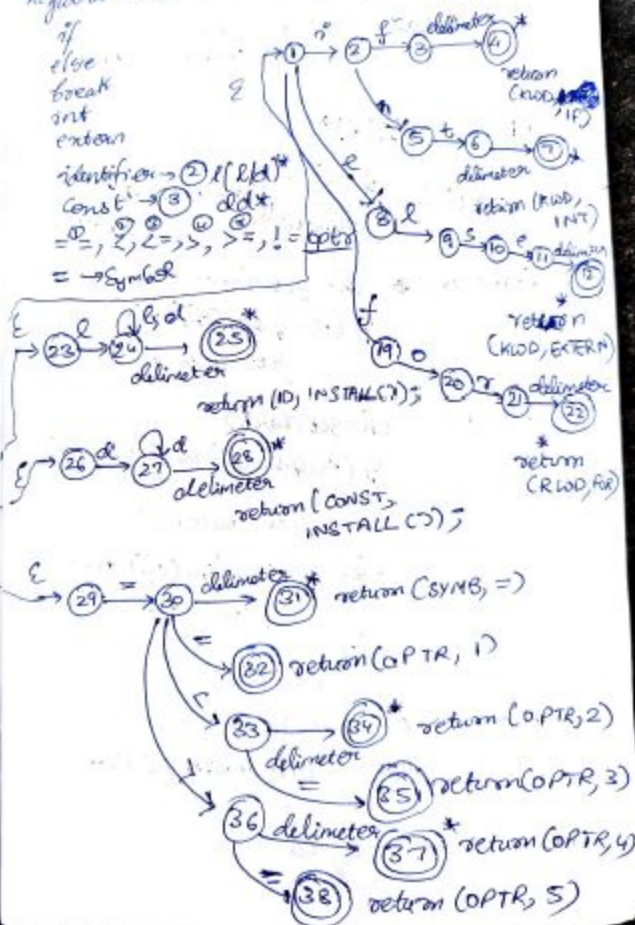 if
else
break
int
extern
identifier → ② l(l/d)*
const → ③ dd*
==, <, <=, >, >=, != optr
= → Symbol
ε
1 i 2 f 3 delimeter 4 *
return
(KWD, IF)
n 5 t 6 7 *
delimeter
return (KWD,
INT)
e 8 l 9 s 10 e 11 delimeter 12
*
return
(KWD, EXTERN)
f 19 o 20 r 21 delimeter 22
*
return
(KWD, FOR)
ε 23 l 24 l,d 25 *
delimeter
return (ID, INSTALL());
ε 26 d 27 d 28 *
delimeter
return (CONST,
INSTALL());
ε 29 = 30 delimeter 31 * return (SYMB, =)
= 32 return (OPTR, 1)
< 33 34 * return (OPTR, 2)
delimeter
= 35 return (OPTR, 3)
> 36 delimeter 37 * return (OPTR, 4)
= 38 return (OPTR, 5)